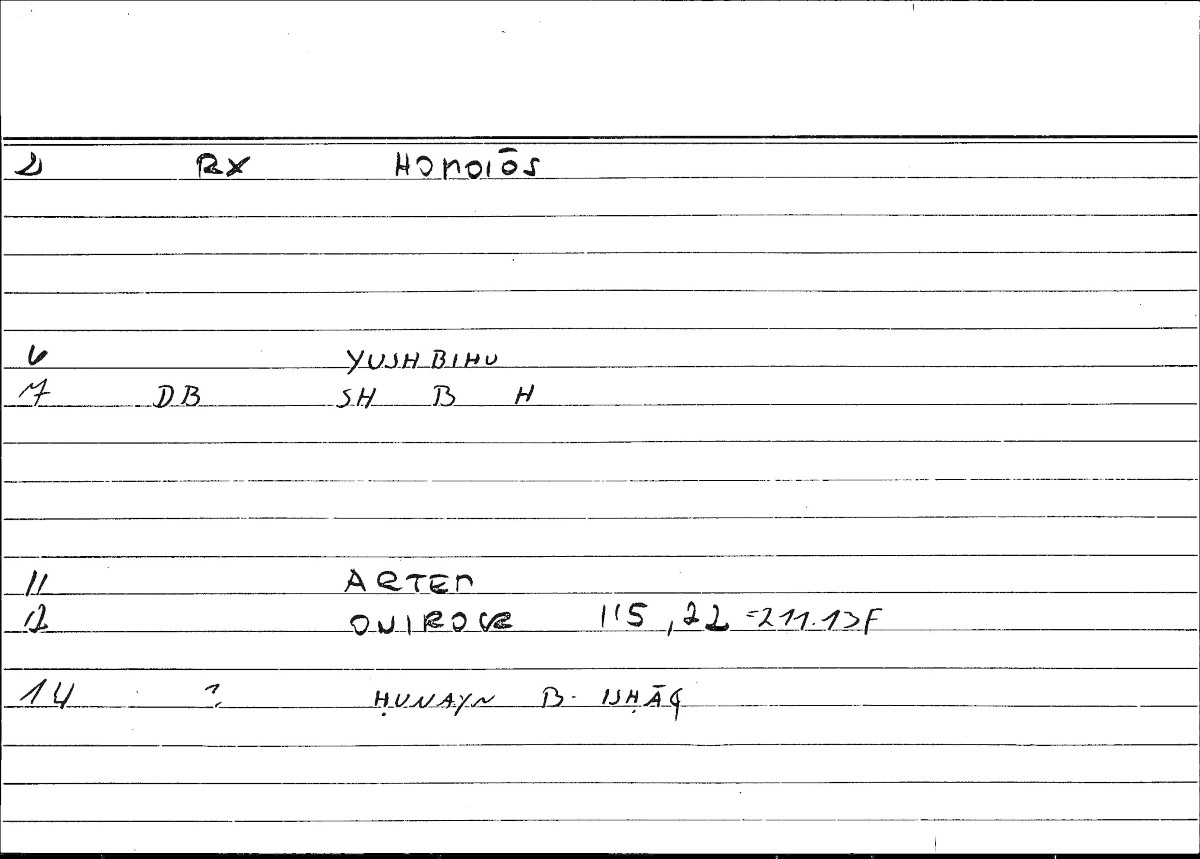 2 RX HOMOIŌS
6 YUSHBIHU
7 DB SH B H
11 ARTEM
12 ONIROCR 1'5,22 =211.13F
14 ? ḤUNAYN B. ISḤĀQ